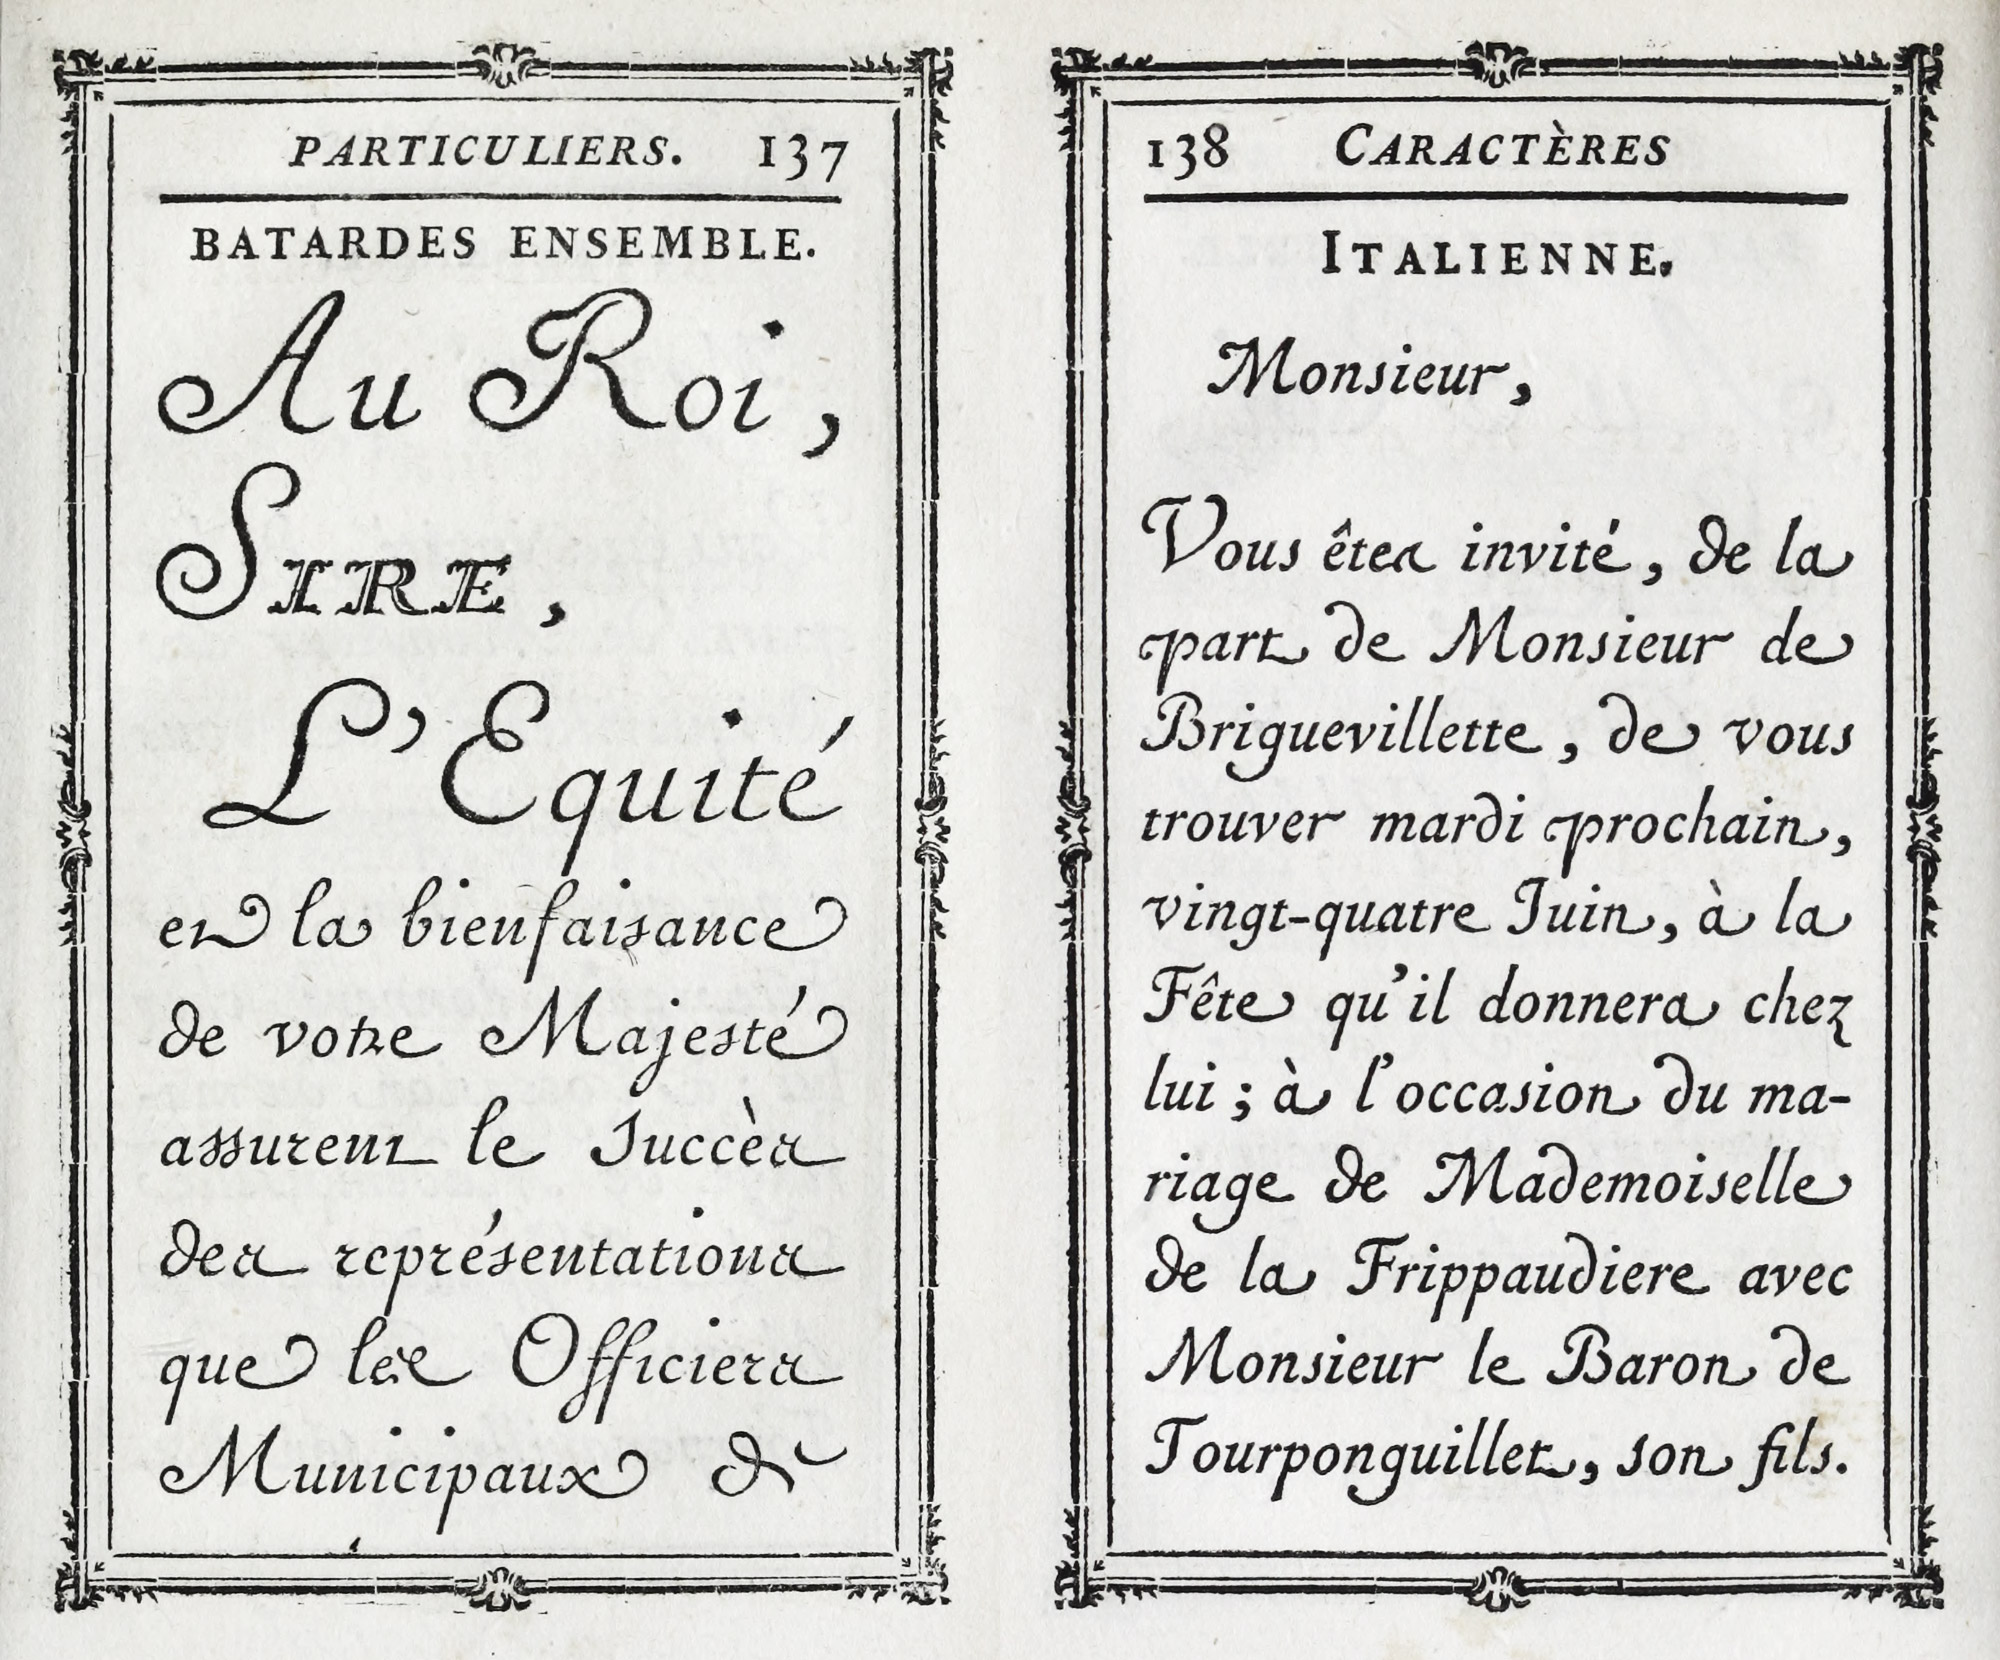 PARTICULIERS. 137
BATARDES ENSEMBLE.
Au Roi,
SIRE,
L'Equité
et la bienfaisance
de votre Majesté
assurent le succès
des représentations
que les Officiers
Municipaux &
138 CARACTÈRES
ITALIENNE.
Monsieur,
Vous êtes invité, de la
part de Monsieur de
Briguevillette, de vous
trouver mardi prochain,
vingt-quatre Juin, à la
Fête qu'il donnera chez
lui ; à l'occasion du ma-
riage de Mademoiselle
de la Frippaudiere avec
Monsieur le Baron de
Tourponguillet, son fils.